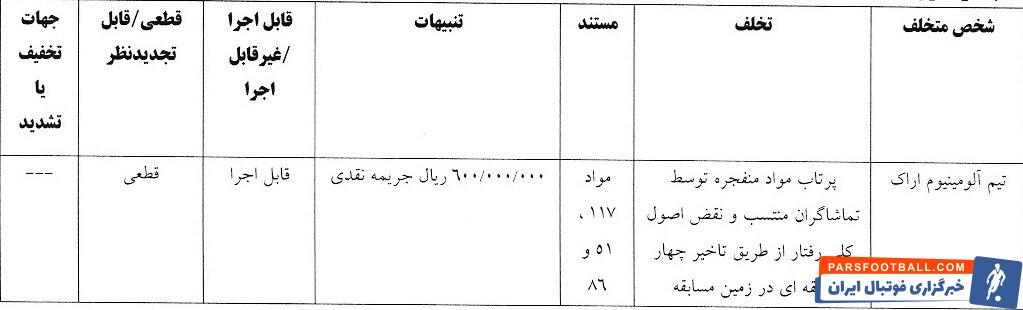 شخص متخلف
تخلف
مستند
تنبیهات
قابل اجرا
/غیرقابل
اجرا
قطعی/قابل
تجدیدنظر
جهات
تخفیف
یا
تشدید
تیم آلومینیوم اراک
پرتاب مواد منفجره توسط
تماشاگران منتسب و نقض اصول
کلی رفتار از طریق تاخیر چهار
ای در زمین مسابقه
مواد
۱۱۷ ،
۵۱ و
۸۶
۶۰۰/۰۰۰/۰۰۰ ریال جریمه نقدی
قابل اجرا
قطعی
---
PARSFOOTBALL.COM
خبرگزاری فوتبال ایران